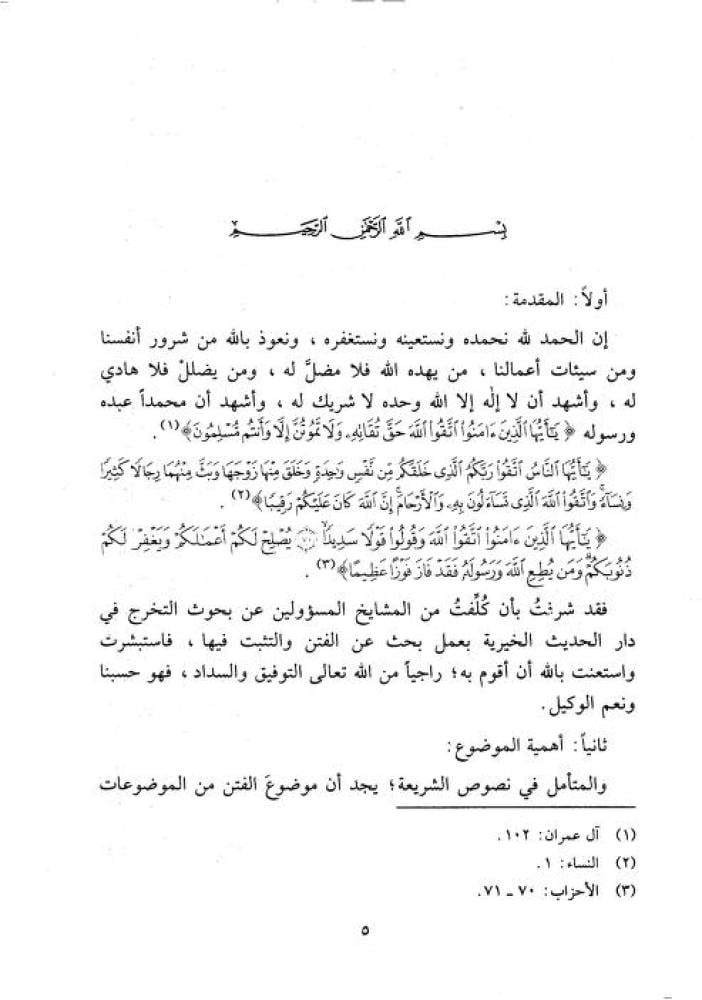 بِسْمِ ٱللَّهِ ٱلرَّحْمَٰنِ ٱلرَّحِيمِ
أولاً: المقدمة:
إن الحمد لله نحمده ونستعينه ونستغفره ، ونعوذ بالله من شرور أنفسنا
ومن سيئات أعمالنا ، من يهده الله فلا مضلَّ له ، ومن يضللْ فلا هادي
له ، وأشهد أن لا إلٰه إلا الله وحده لا شريك له ، وأشهد أن محمداً عبده
ورسوله ﴿ يَٰٓأَيُّهَا ٱلَّذِينَ ءَامَنُوا۟ ٱتَّقُوا۟ ٱللَّهَ حَقَّ تُقَاتِهِۦ وَلَا تَمُوتُنَّ إِلَّا وَأَنتُم مُّسْلِمُونَ﴾(١) .
﴿ يَٰٓأَيُّهَا ٱلنَّاسُ ٱتَّقُوا۟ رَبَّكُمُ ٱلَّذِى خَلَقَكُم مِّن نَّفْسٍ وَٰحِدَةٍ وَخَلَقَ مِنْهَا زَوْجَهَا وَبَثَّ مِنْهُمَا رِجَالًا كَثِيرًا
وَنِسَآءً ۚ وَٱتَّقُوا۟ ٱللَّهَ ٱلَّذِى تَسَآءَلُونَ بِهِۦ وَٱلْأَرْحَامَ ۚ إِنَّ ٱللَّهَ كَانَ عَلَيْكُمْ رَقِيبًا ﴾(٢) .
﴿ يَٰٓأَيُّهَا ٱلَّذِينَ ءَامَنُوا۟ ٱتَّقُوا۟ ٱللَّهَ وَقُولُوا۟ قَوْلًا سَدِيدًا ۝٧٠ يُصْلِحْ لَكُمْ أَعْمَٰلَكُمْ وَيَغْفِرْ لَكُمْ
ذُنُوبَكُمْ ۗ وَمَن يُطِعِ ٱللَّهَ وَرَسُولَهُۥ فَقَدْ فَازَ فَوْزًا عَظِيمًا ﴾(٣) .
فقد شرفتُ بأن كُلِّفتُ من المشايخ المسؤولين عن بحوث التخرج في
دار الحديث الخيرية بعمل بحث عن الفتن والتثبت فيها ، فاستبشرت
واستعنت بالله أن أقوم به؛ راجياً من الله تعالى التوفيق والسداد ، فهو حسبنا
ونعم الوكيل.
ثانياً: أهمية الموضوع:
والمتأمل في نصوص الشريعة؛ يجد أن موضوعَ الفتن من الموضوعات
(١) آل عمران: ١٠٢ .
(٢) النساء: ١ .
(٣) الأحزاب: ٧٠ ـ ٧١ .
٥